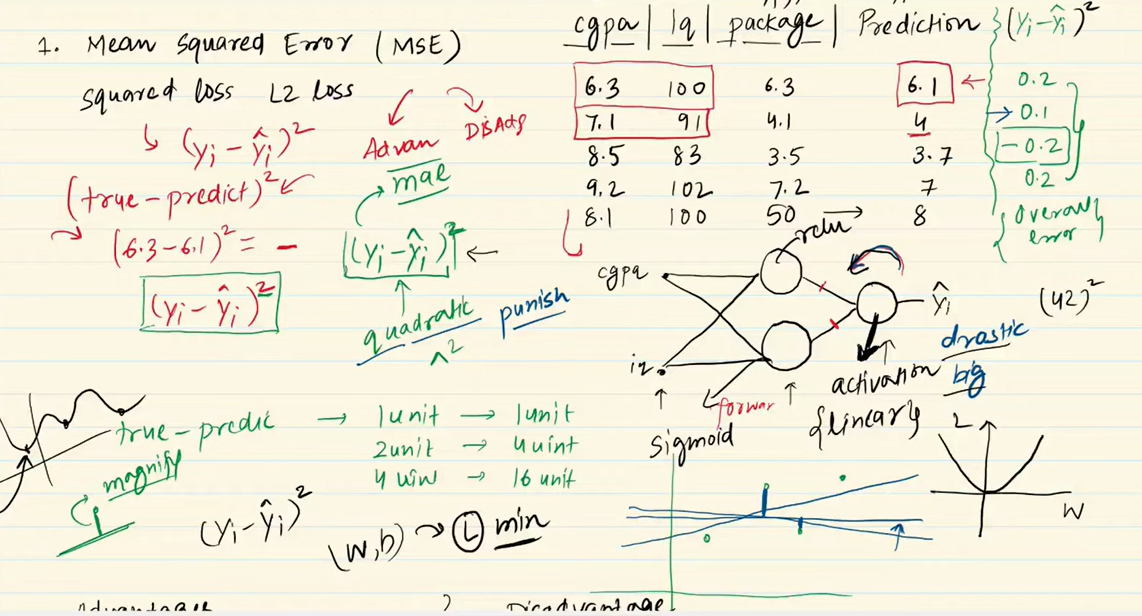 1. Mean Squared Error (MSE)
Squared loss L2 loss
(yi - ŷi)²
(true - predict)²
(6.3 - 6.1)² = -
(yi - ŷi)²
Advan
DisAdg
mae
(yi - ŷi)²
quadratic
^2
punish
cgpa | Iq | package | Prediction (yi - ŷi)²
6.3 100 6.3 6.1 0.2
7.1 91 4.1 4 0.1
8.5 83 3.5 3.7 -0.2
9.2 102 7.2 7 0.2
8.1 100 50 → 8
{ Overall error }
relu
cgpa
iq
ŷi
(42)²
drastic
big
activation
{linear}
forwar
sigmoid
true - predic → 1 unit → 1 unit
2 unit → 4 uint
4 uin → 16 unit
magnify
(yi - ŷi)²
(w, b) → L min
L
W
Advantages
Disadvantage